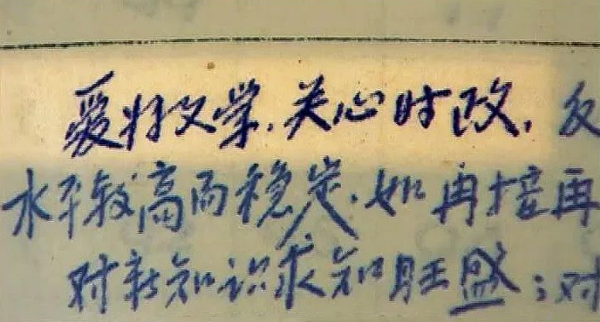 爱好文学,关心时政,反
水平较高而稳定.如再接再
对新知识求知旺盛;对